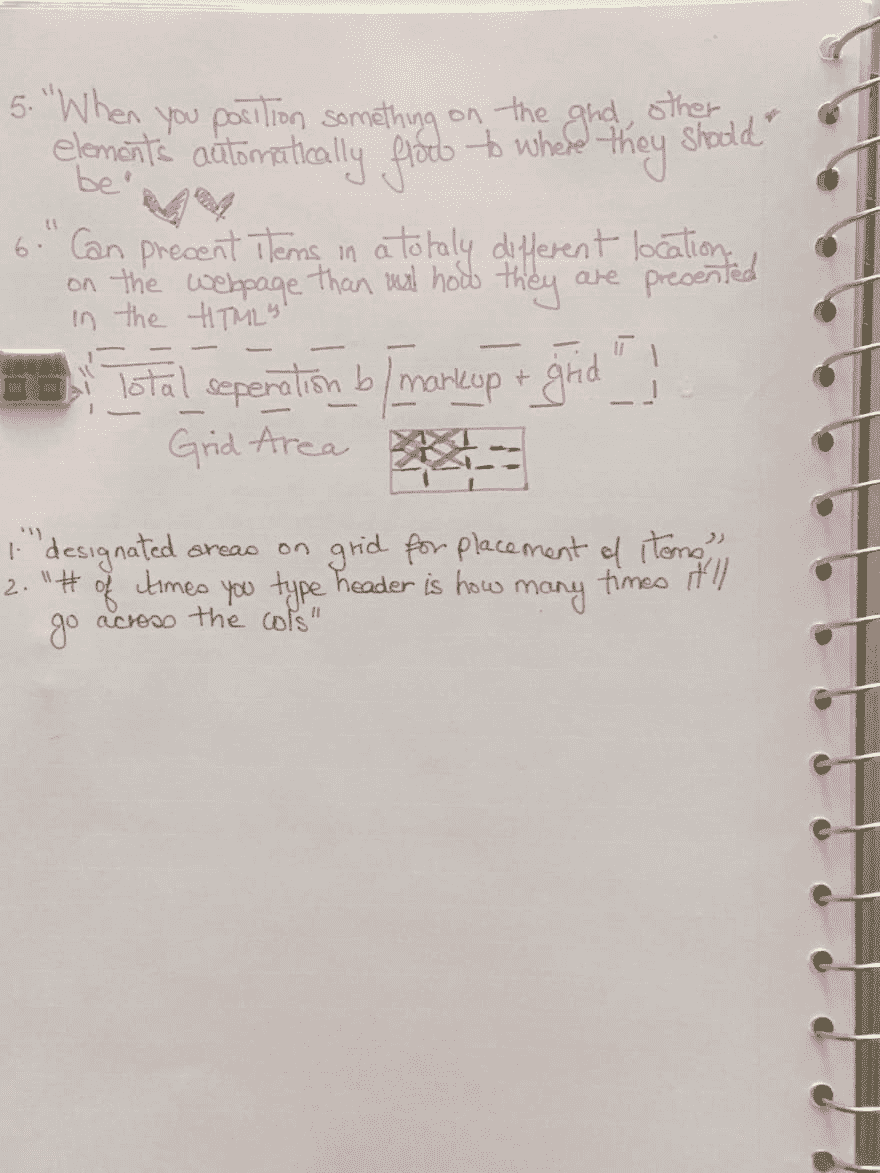 5. "When you position something on the grid, other
elements automatically flow to where they should"
be"
6. "Can precent items in a totaly different location
on the webpage than how they are precented
in the HTML"
"Total seperation b/ markup + grid"
Grid Area
1. "designated areas on grid for placement of items"
2. "# of times you type header is how many times it'll
go across the cols"